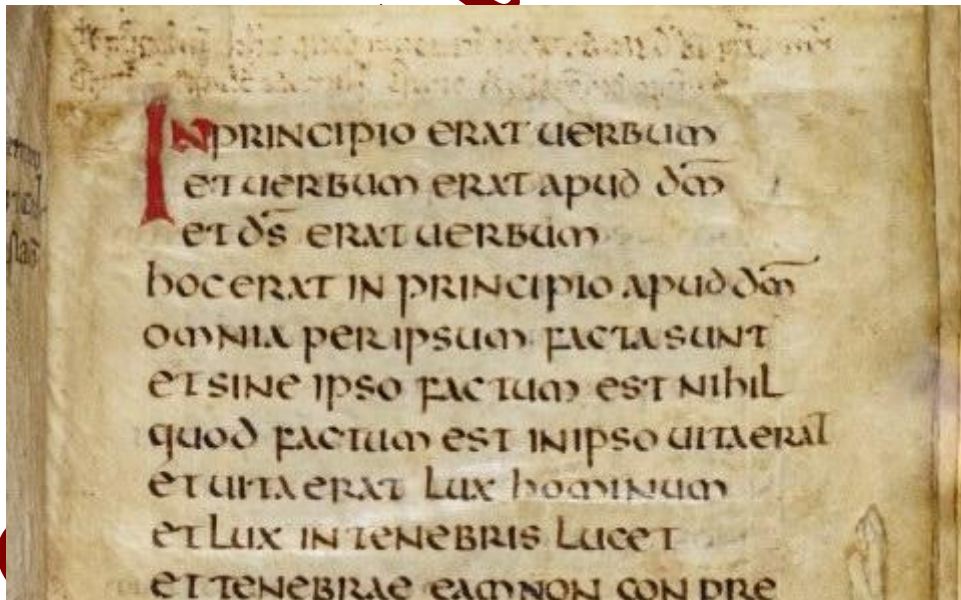 INPRINCIPIO ERAT UERBUM
ET UERBUM ERAT APUD D̄M
ET D̄S ERAT UERBUM
hOC ERAT IN PRINCIPIO APUD D̄M
OMNIA PER IPSUM FACTA SUNT
ET SINE IPSO FACTUM EST NIhIL
QUOD FACTUM EST IN IPSO UITA ERAT
ET UITA ERAT LUX hOMINUM
ET LUX IN TENEBRIS LUCET
ET TENEBRAE EAM NON CONPRE